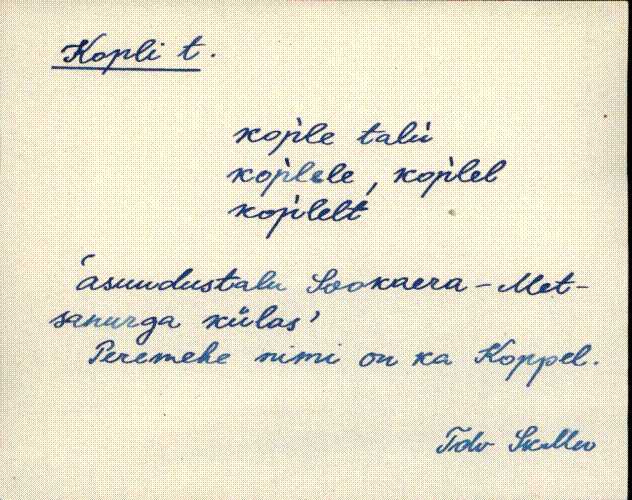 Kopli t.
kop̀le talù
kop̀lele, kop̀lel
kop̀lelt
'asundustalu Sookaera-Met-
sanurga külas'
Peremehe nimi on ka Koppel.